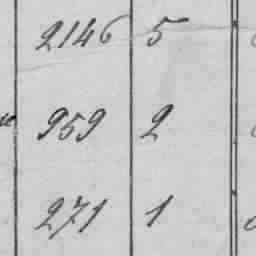 2146 5
959 2
271 1